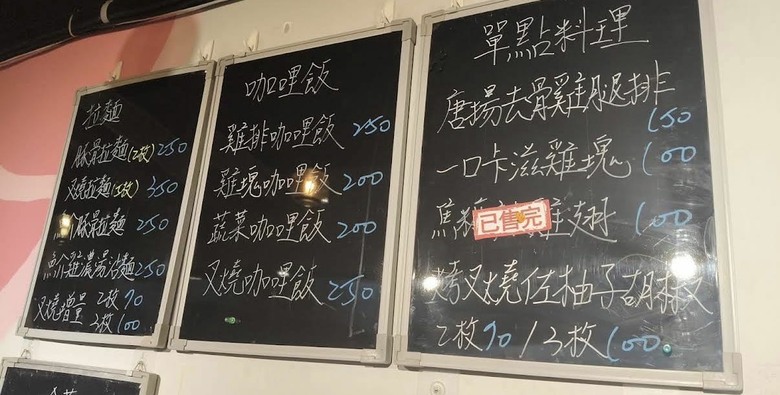 拉麵
豚骨拉麵(2枚) 250
叉燒拉麵(5枚) 350
魚介豚骨拉麵 250
魚介雞濃湯沾麵 250
叉燒增量 2枚 70
3枚 100
咖哩飯
雞排咖哩飯 250
雞塊咖哩飯 200
蔬菜咖哩飯 200
叉燒咖哩飯 250
單點料理
唐揚去骨雞腿排 150
一口卡滋雞塊 100
馬 雞翅 100
已售完
烤叉燒佐柚子胡椒
2枚 70 / 3枚 100